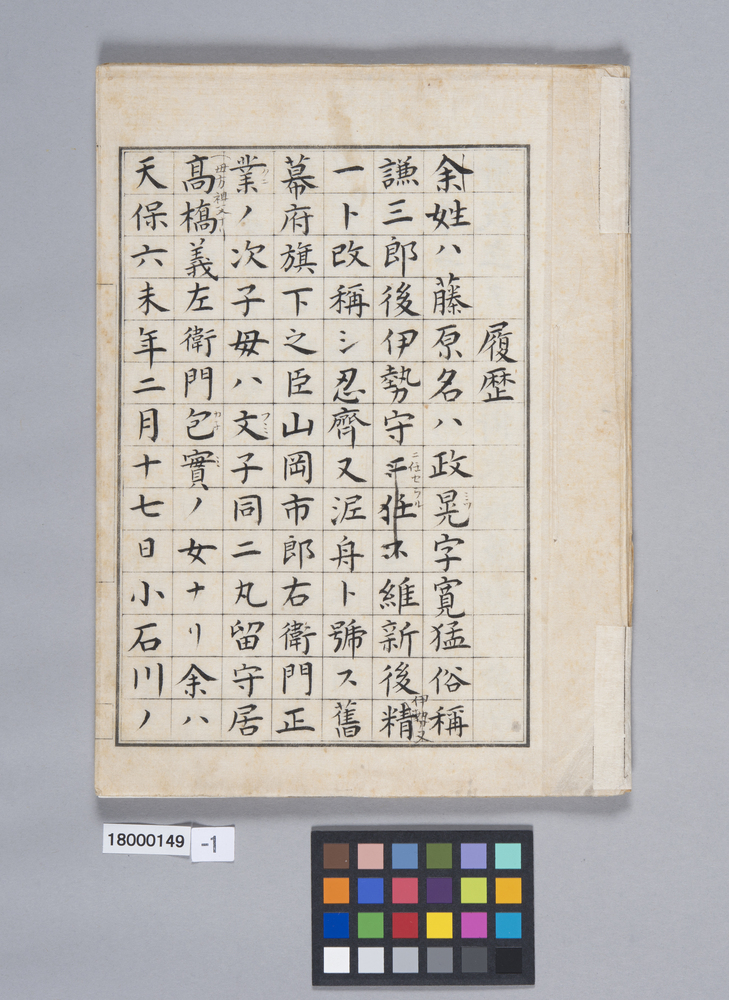 履歴
余姓ハ藤原名ハ政晃字寛猛俗稱
ミツ
謙三郎後伊勢守ニ任セラル維新後精
伊勢又
一ト改稱シ忍齊又泥舟ト號ス舊
幕府旗下之臣山岡市郎右衛門正
業ノ次子母ハ文子同二丸留守居
フミ
母方祖父ナリ
髙橋義左衛門包實ノ女ナリ余ハ
カネ
ミ
天保六未年二月十七日小石川ノ
18000149
-1